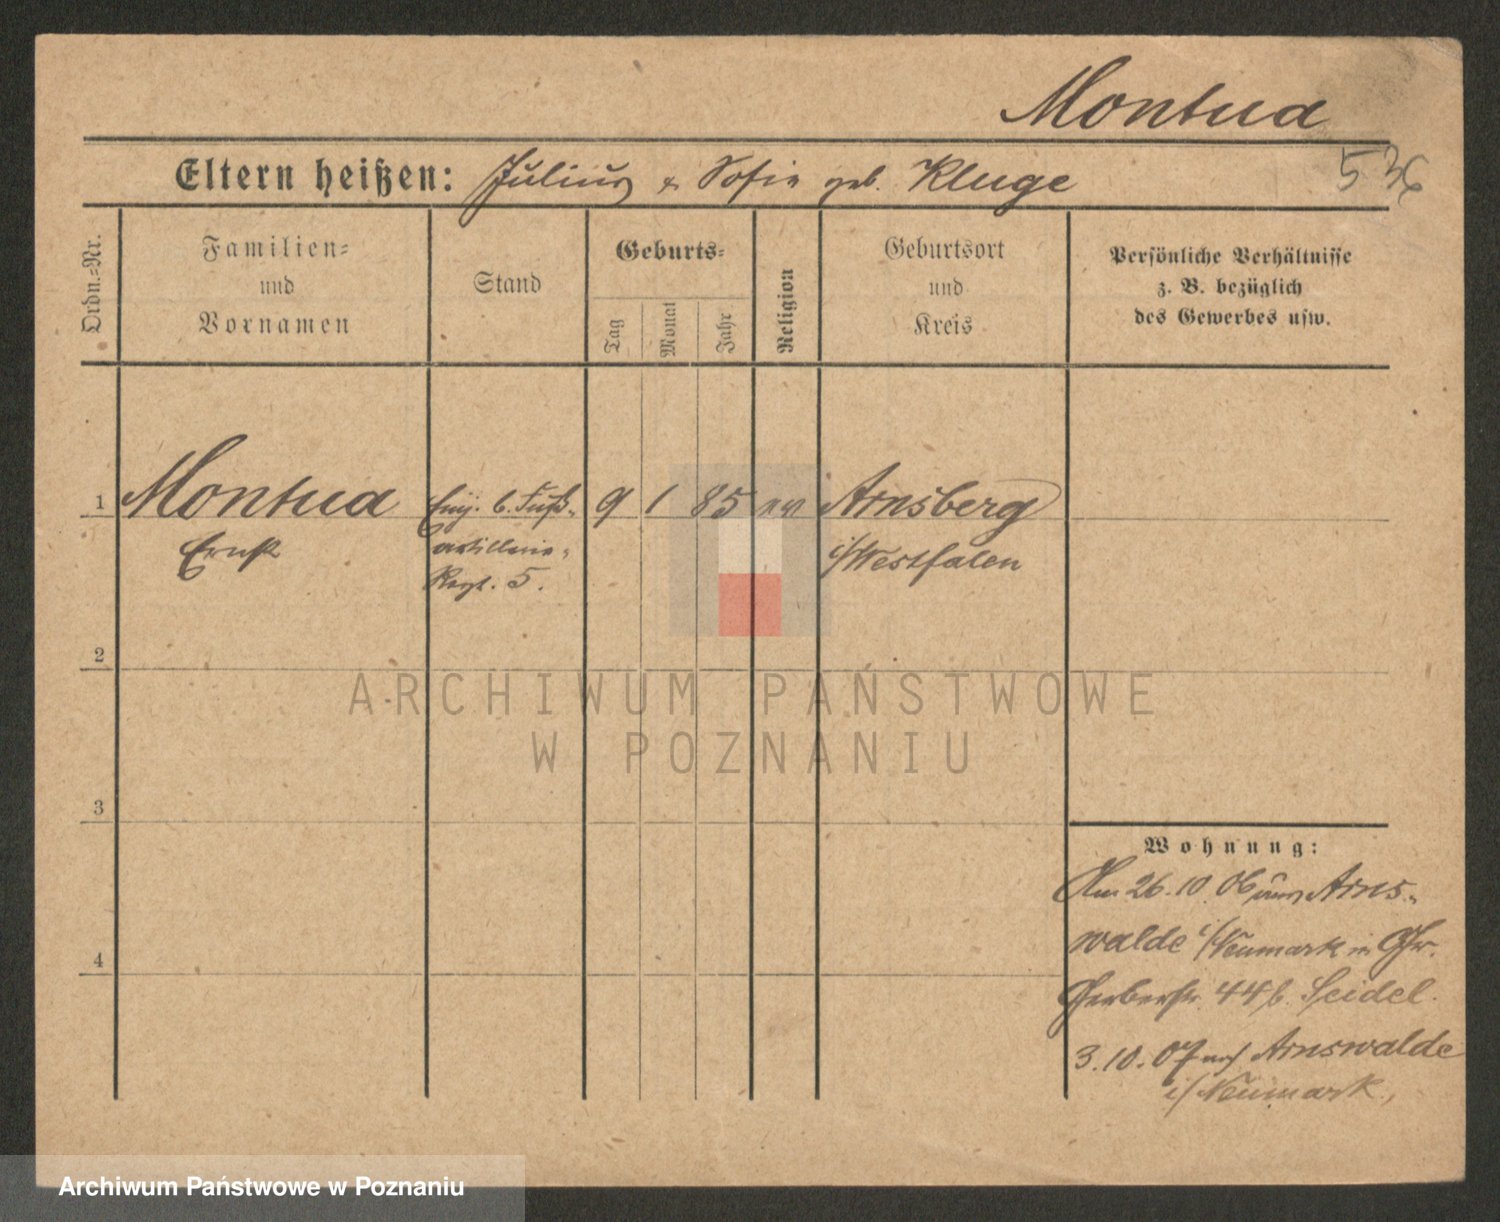 Montua
536
Eltern heißen: Julius & Sofie geb. Kluge
Ordn.-Nr.
Familien-
und
Vornamen
Stand
Geburts-
Tag
Monat
Jahr
Religion
Geburtsort
und
Kreis
Persönliche Verhältnisse
z. B. bezüglich
des Gewerbes usw.
1 Montua Einj. b. Fuß- 9 1 85 ev Arnsberg
Ernst artillerie- i/Westfalen
Regt. 5.
2
ARCHIWUM PAŃSTWOWE
W POZNANIU
3
Wohnung:
Am 26.10.06 Arns-
walde i/Neumark in
4
Gerberstr. 44 b. Seidel.
3.10.07 nach Arnswalde
i/Neumark.
Archiwum Państwowe w Poznaniu